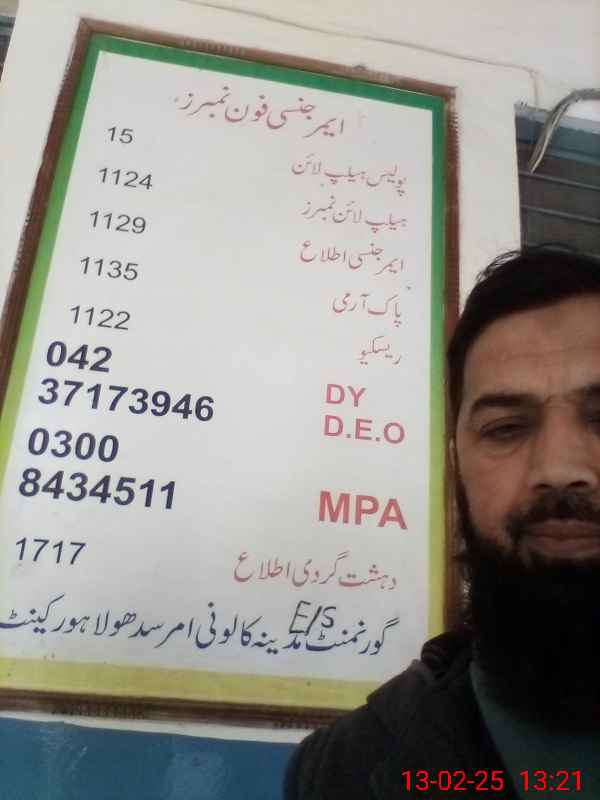 ایمر جنسی فون نمبرز
15 پولیس ہیلپ لائن
1124 ہیلپ لائن نمبرز
1129 ایمر جنسی اطلاع
1135 پاک آرمی
1122 ریسکیو
042
37173946
DY
D.E.O
0300
8434511
MPA
1717 دہشت گردی اطلاع
E/S
گورنمنٹ مدینہ کالونی امر سدھو لاہور کینٹ
13-02-25 13:21